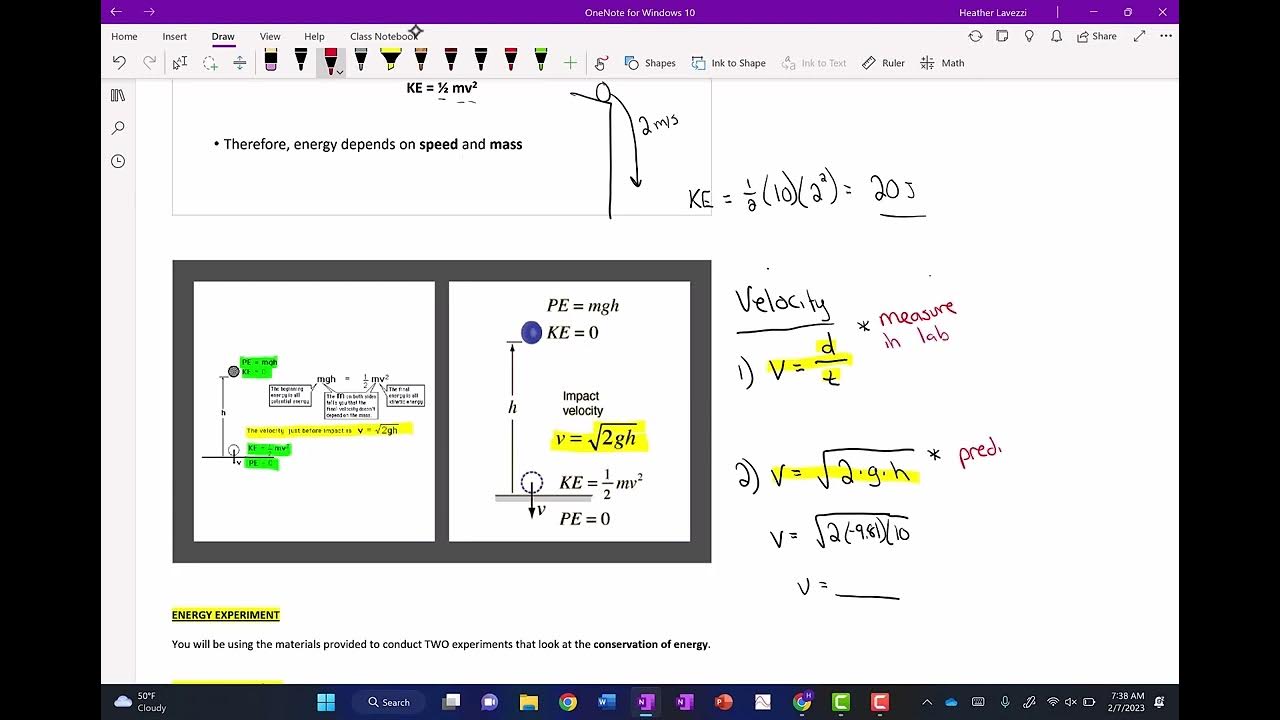 OneNote for Windows 10
Heather Lavezzi
Home Insert Draw View Help Class Notebook
Share
Shapes Ink to Shape Ink to Text Ruler Math
KE = ½ mv²
• Therefore, energy depends on speed and mass
2 m/s
KE = 1/2 (10)(2²) = 20 J
PE = mgh
KE = 0
mgh = 1/2 mv²
The beginning energy is all potential energy
The m on both sides tells you that the final velocity doesn't depend on the mass.
The final energy is all kinetic energy
h
The velocity just before impact is v = √2gh
KE = 1/2 mv²
v
PE = 0
PE = mgh
KE = 0
h
Impact
velocity
v = √2gh
KE = 1/2 mv²
v
PE = 0
Velocity
* measure
in lab
1) V = d/t
2) V = √2·g·h * pred.
V = √2(-9.81)(10
V = ____
ENERGY EXPERIMENT
You will be using the materials provided to conduct TWO experiments that look at the conservation of energy.
50°F
Cloudy
Search
7:38 AM
2/7/2023